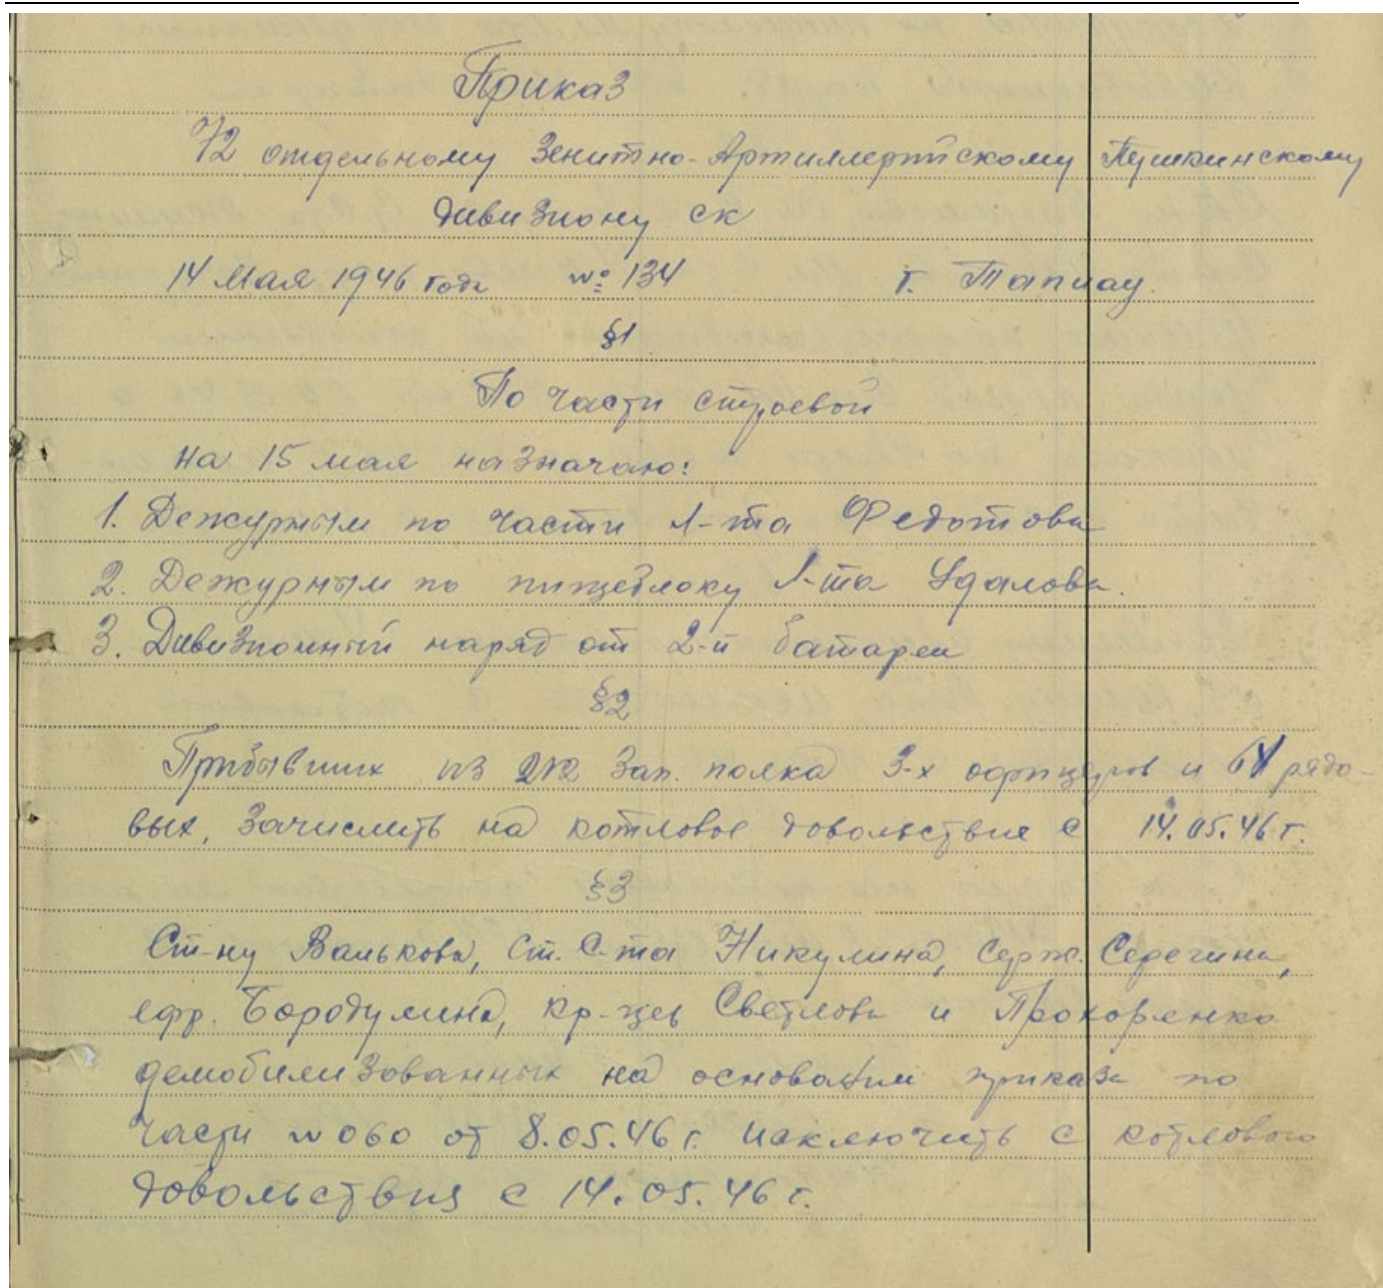 Приказ
72 отдельному Зенитно-Артиллерийскому Пушкинскому
дивизиону СК
14 Мая 1946 года № 134 г. Тапиау.
§1
По части строевой
на 15 мая назначаю:
1. Дежурным по части л-та Федотова
2. Дежурным по пищеблоку л-та Удалова.
3. Дивизионный наряд от 2-й батареи
§2
Прибывших из зап. полка 3-х офицеров и рядо-
вых, зачислить на котловое довольствие с 14.05.46 г.
§3
Ст-ну Валькова, Ст. С-та Никулина, Серж. Серегина,
ефр. Бородулина, кр-цев Светлова и Прохоренко
демобилизованных на основании приказа по
части № 060 от 8.05.46 г. исключить с котлового
довольствия с 14.05.46 г.